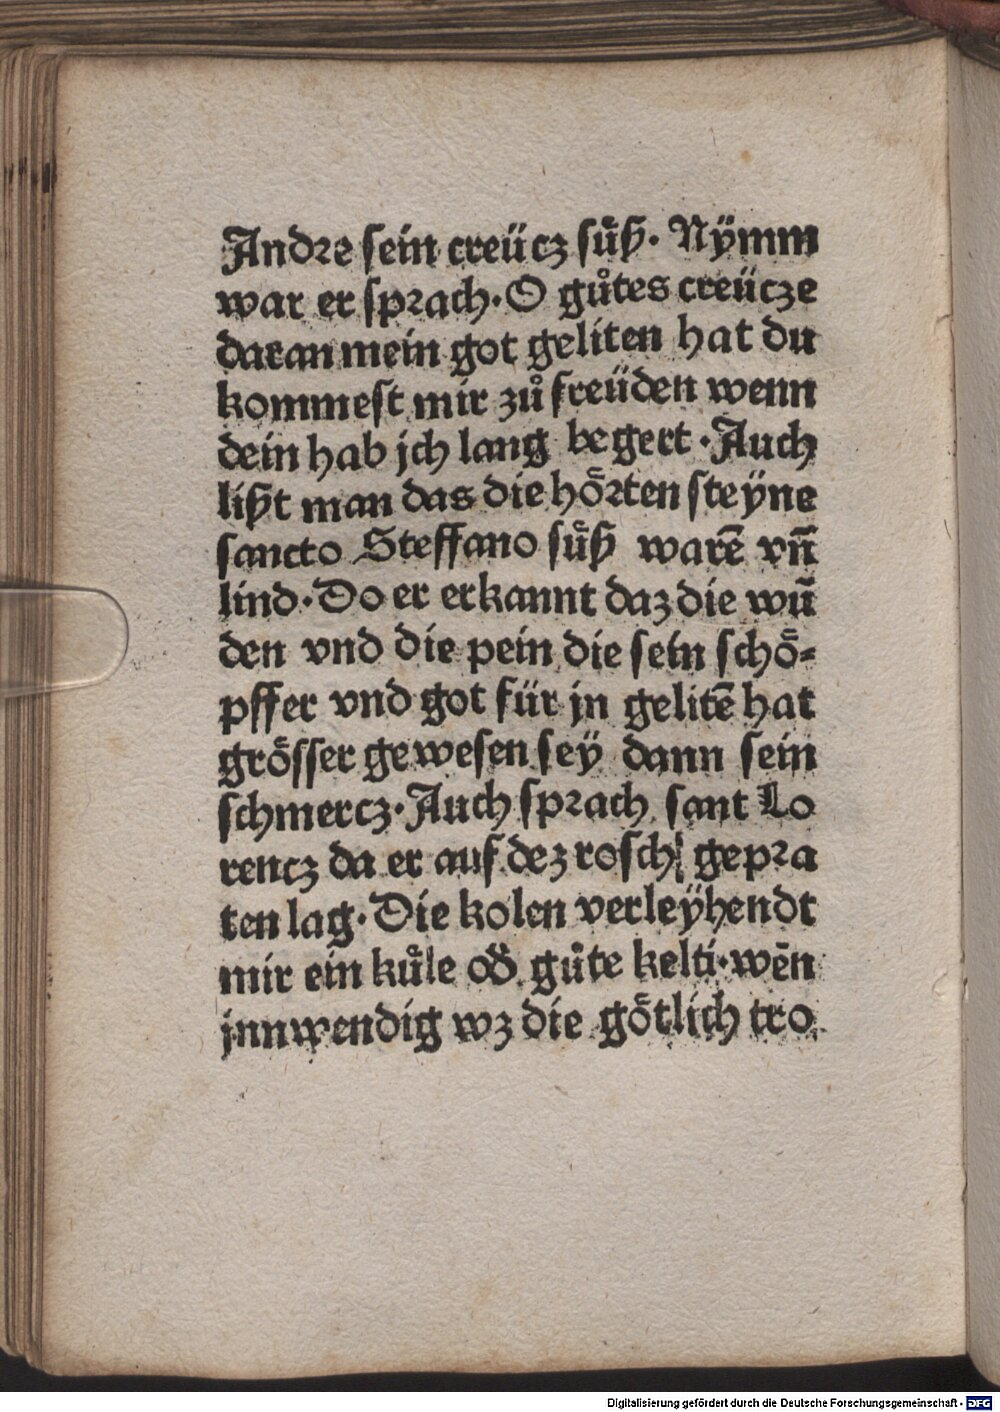 Andre sein creücz süͤß· Nÿmm
war er sprach· O guͦtes creücze
daran mein got geliten hat du
kommest mir zuͦ freüden wenn
dein hab jch lang begert · Auch
lißt man das die hoͤrten steÿne
sancto Steffano suͤß warē vn̄
lind· Do er erkannt daz die wū
den vnd die pein die sein schoͤ-
pffer vnd got für jn gelitē hat
groͤsser gewesen seÿ dann sein
schmercz· Auch sprach sant Lo
rencz da er auf dez rosch gepra
ten lag· Die kolen verleÿhendt
mir ein kuͤle od̕ guͦte kelti· wēn
jnnwendig wz die goͤtlich tro
Digitalisierung gefördert durch die Deutsche Forschungsgemeinschaft - DFG